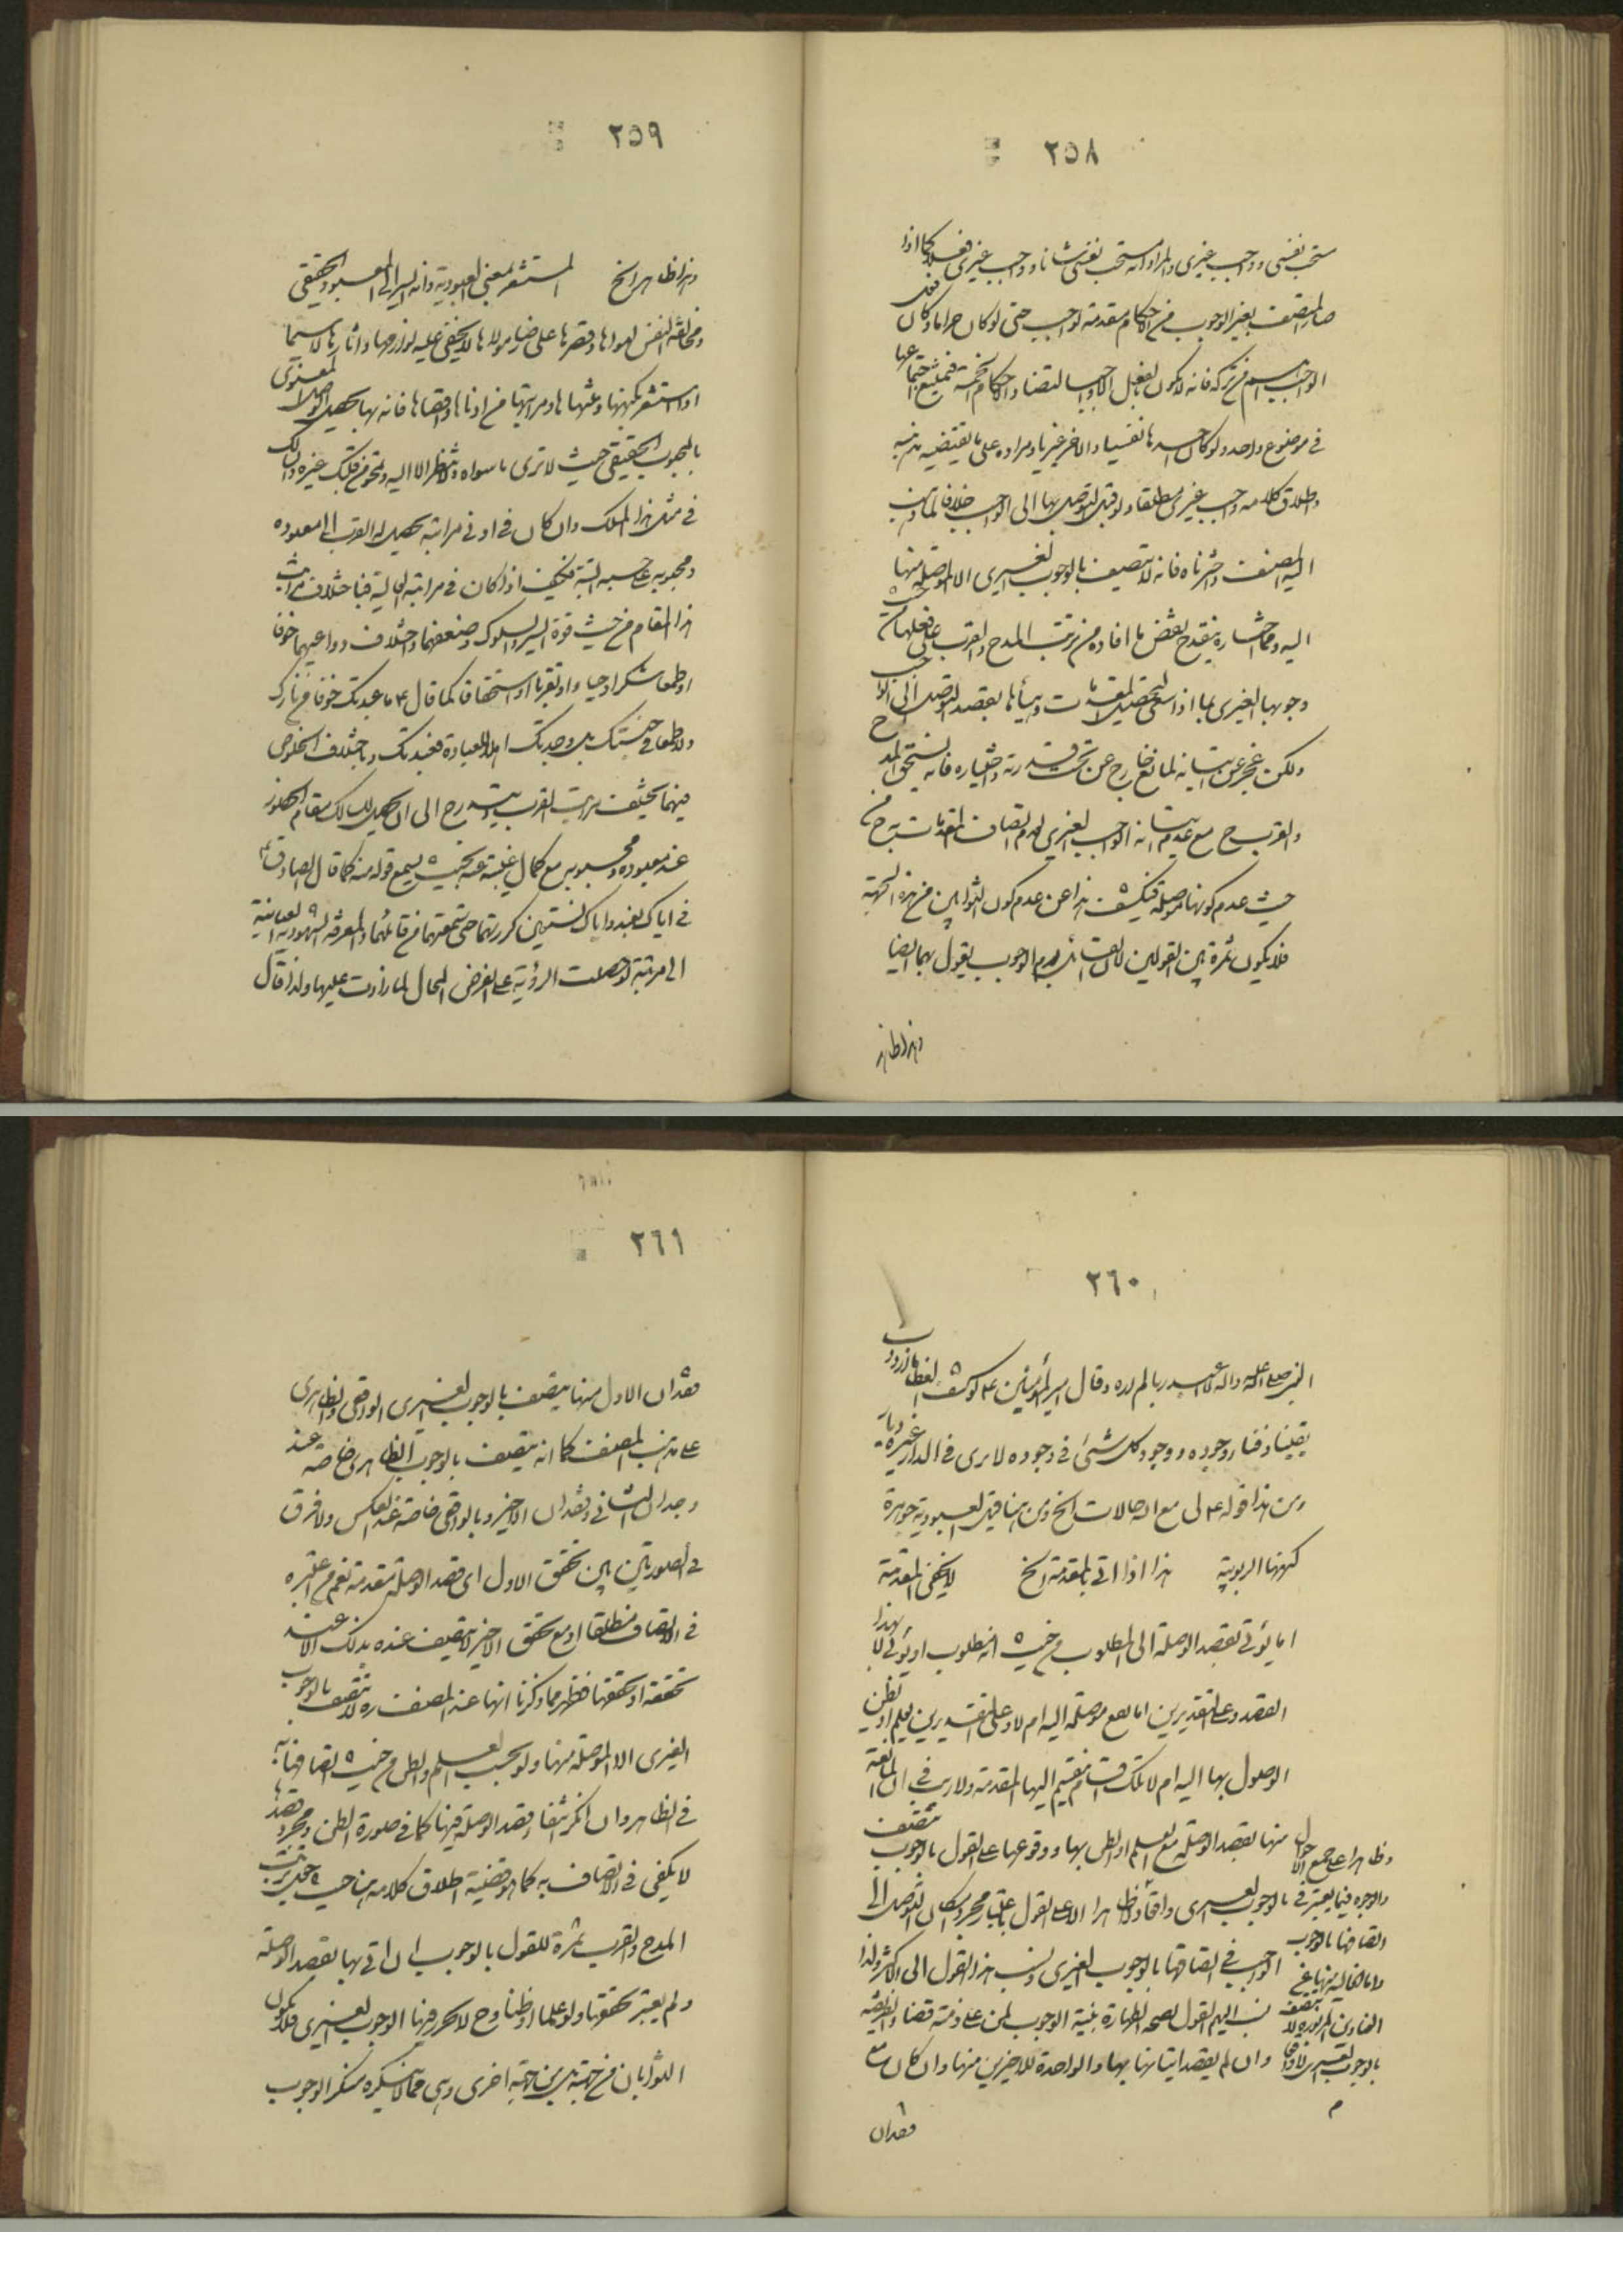 ٢٥٨
مستحب نفسی وواجب غیری والمراد انه مستحب نفسی شانا وواجب غیری فعلا کما اذا
صار المتصف بغیر الوجوب من الاحکام مقدمة لواجب حتی لو کان حراما وکان فعل
الواجب اهم من ترکه فانه لا یکون بالفعل الا واجبا لتضاد الاحکام الخمسة فیمتنع اجتماعها
فی موضوع واحد ولو کان احدها نفسیا والاخر غیریا ومراده علی ما یقتضیه مذهبه
واطلاق کلامه واجب غیری مطلقا ولو قبل التوصل بها الی الواجب خلافا لما ذهب
الیه المصنف واخترناه فانه لا یتصف بالوجوب الغیری الا الموصلة منها
الیه ومما اختاره ینقدح بعض ما افاده من ترتب المدح والقرب علی فعلها
وجوبها الغیری بما اذا سعی لتحصیل المقدمات وهیأها بقصد التوصل الی الواجب
ولکن عجز عن اتیانه لمانع خارج عن تحت قدرته واختیاره فانه یستحق المدح
والقرب ح مع عدم اتیانه الواجب الغیری لعدم اتصاف المقدمات به من
حیث عدم کونها موصلة فیکشف هذا عن عدم کون الثوابین من هذه الجهة
فلا یکون ثمرة بین القولین لان القائل بعدم الوجوب یقول بهما ایضا
وهذا ظاهر
٢٥٩
وهذا ظاهر الخ المستشعر لمعنی العبودیة وانه السیر الی المعبود الحقیقی
ومخالفة النفس لهواها وقصرها علی رضا مولاها لا یخفی علیه لوازمها واثارها لا سیما
اذا استشعر بکنهها وغثها ومراتبها من ادناها واقصاها فانه بها یحصل الوصل المعنوی
بالمحبوب الحقیقی حیث لا تری ما سواه ولا تنظر الا الیه وتمحو من قلبک غیره والسالک
فی مثل هذا المسلک وان کان فی ادنی مراتبه یحصل له القرب الی معبوده
ومحبوبه علی حسبه البتة فکیف اذا کان فی مراتبه العالیة فباختلاف مراتب
هذا المقام من حیث قوة السیر والسلوک وضعفهما واختلاف دواعیهما خوفا
او طمعا او شکرا او حیاء او تقربا او استحقاقا کما قال ع ما عبدتک خوفا من نارک
ولا طمعا فی جنتک بل وجدتک اهلا للعبادة فعبدتک وباختلاف الخلوص
فیهما یختلف مراتب القرب یتدرج الی ان یحصل للسالک مقام الحضور
عند معبوده ومحبوبه مع کمال غیبته عنه بحیث یسمع قوله منه کما قال الصادق ع
فی ایاک نعبد وایاک نستعین کررتهما حتی سمعتهما من قائلهما والمعرفة الشهودیة العیانیة
الی مرتبة لو حصلت الرؤیة علی الفرض المحال لما زادت علیها ولذا قال
٢٦٠
النبی صلی الله علیه واله لا اعبد ربا لم اره وقال امیر المؤمنین ع لو کشف الغطاء ما ازددت
یقینا وفناء وجوده ووجود کل شیء فی وجوده لا یری فی الدار غیره دیار
ومن هذا قوله ع لی مع الله حالات الخ ومن هنا قیل العبودیة جوهرة
کنهها الربوبیة هذا اذا اتی بالمقدمة الخ لا یخفی المقدمة
اما یؤتی بقصد الوصلة الی المطلوب من حیث انه مطلوب او یؤتی لا بهذا
القصد وعلی التقدیرین اما یقع موصلة الیه ام لا وعلی التقدیرین یعلم او یظن
الوصول بها الیه ام لا تلک اقسام تنقسم الیها المقدمة ولا ریب فی ان المأتیة
منها بقصد الوصلة مع العلم او الظن بها ووقوعها علی القول بالوجوب تتصف
بالوجوب الغیری واقعا وظاهرا الا علی القول باعتبار مجرد امکان التوصل الی
الواجب فی اتصافها بالوجوب الغیری ونسب هذا القول الی الاکثر ولذا
نسب الیهم القول بصحة الطهارة بنیة الوجوب لمن علی ذمته قضاء الفریضة
وان لم یقصد اتیانها بها والواحدة للاخیرین منها وان کان مع
وظاهرا علی جمیع الاحوال
والوجوه فیما یعتبر فی
اتصافها بالوجوب
بالوجوب الغیری لا واقعا
فقدان
٢٦١
فقدان الاول منها یتصف بالوجوب الغیری الواقعی والظاهری
علی مذهب المصنف کما انه یتصف بالوجوب الظاهری خاصة عند
وجدان الثانی وفقدان الاخیر وبالواقعی خاصة عند العکس ولا فرق
فی الصورتین بین تحقق الاول ای قصد الوصلة مقدمة نعم من اعتبره
فی الاتصاف مطلقا او مع تحقق الاخیر لا یتصف عنده بذلک الا عند
تحققه او تحققها فظهر مما ذکرنا انها عند المصنف ره لا تتصف بالوجوب
الغیری الا الموصلة منها ولو بحسب العلم والظن من حیث اتصافها به
فی الظاهر وان انکر انتفاء قصد الوصلة فیها کما فی صورة الظن ومجرد قصدها
لا یکفی فی الاتصاف به کما هو قضیة اطلاق کلامه هنا حیث جعل ترتب
المدح والقرب ثمرة للقول بالوجوب ان اتی بها بقصد الوصلة
ولم یعتبر تحققها ولو علما او ظنا وح لا یحرز فیها الوجوب الغیری فلا یکون
الثوابان من جهته بل من جهة اخری وهی مما لا ینکره منکر الوجوب